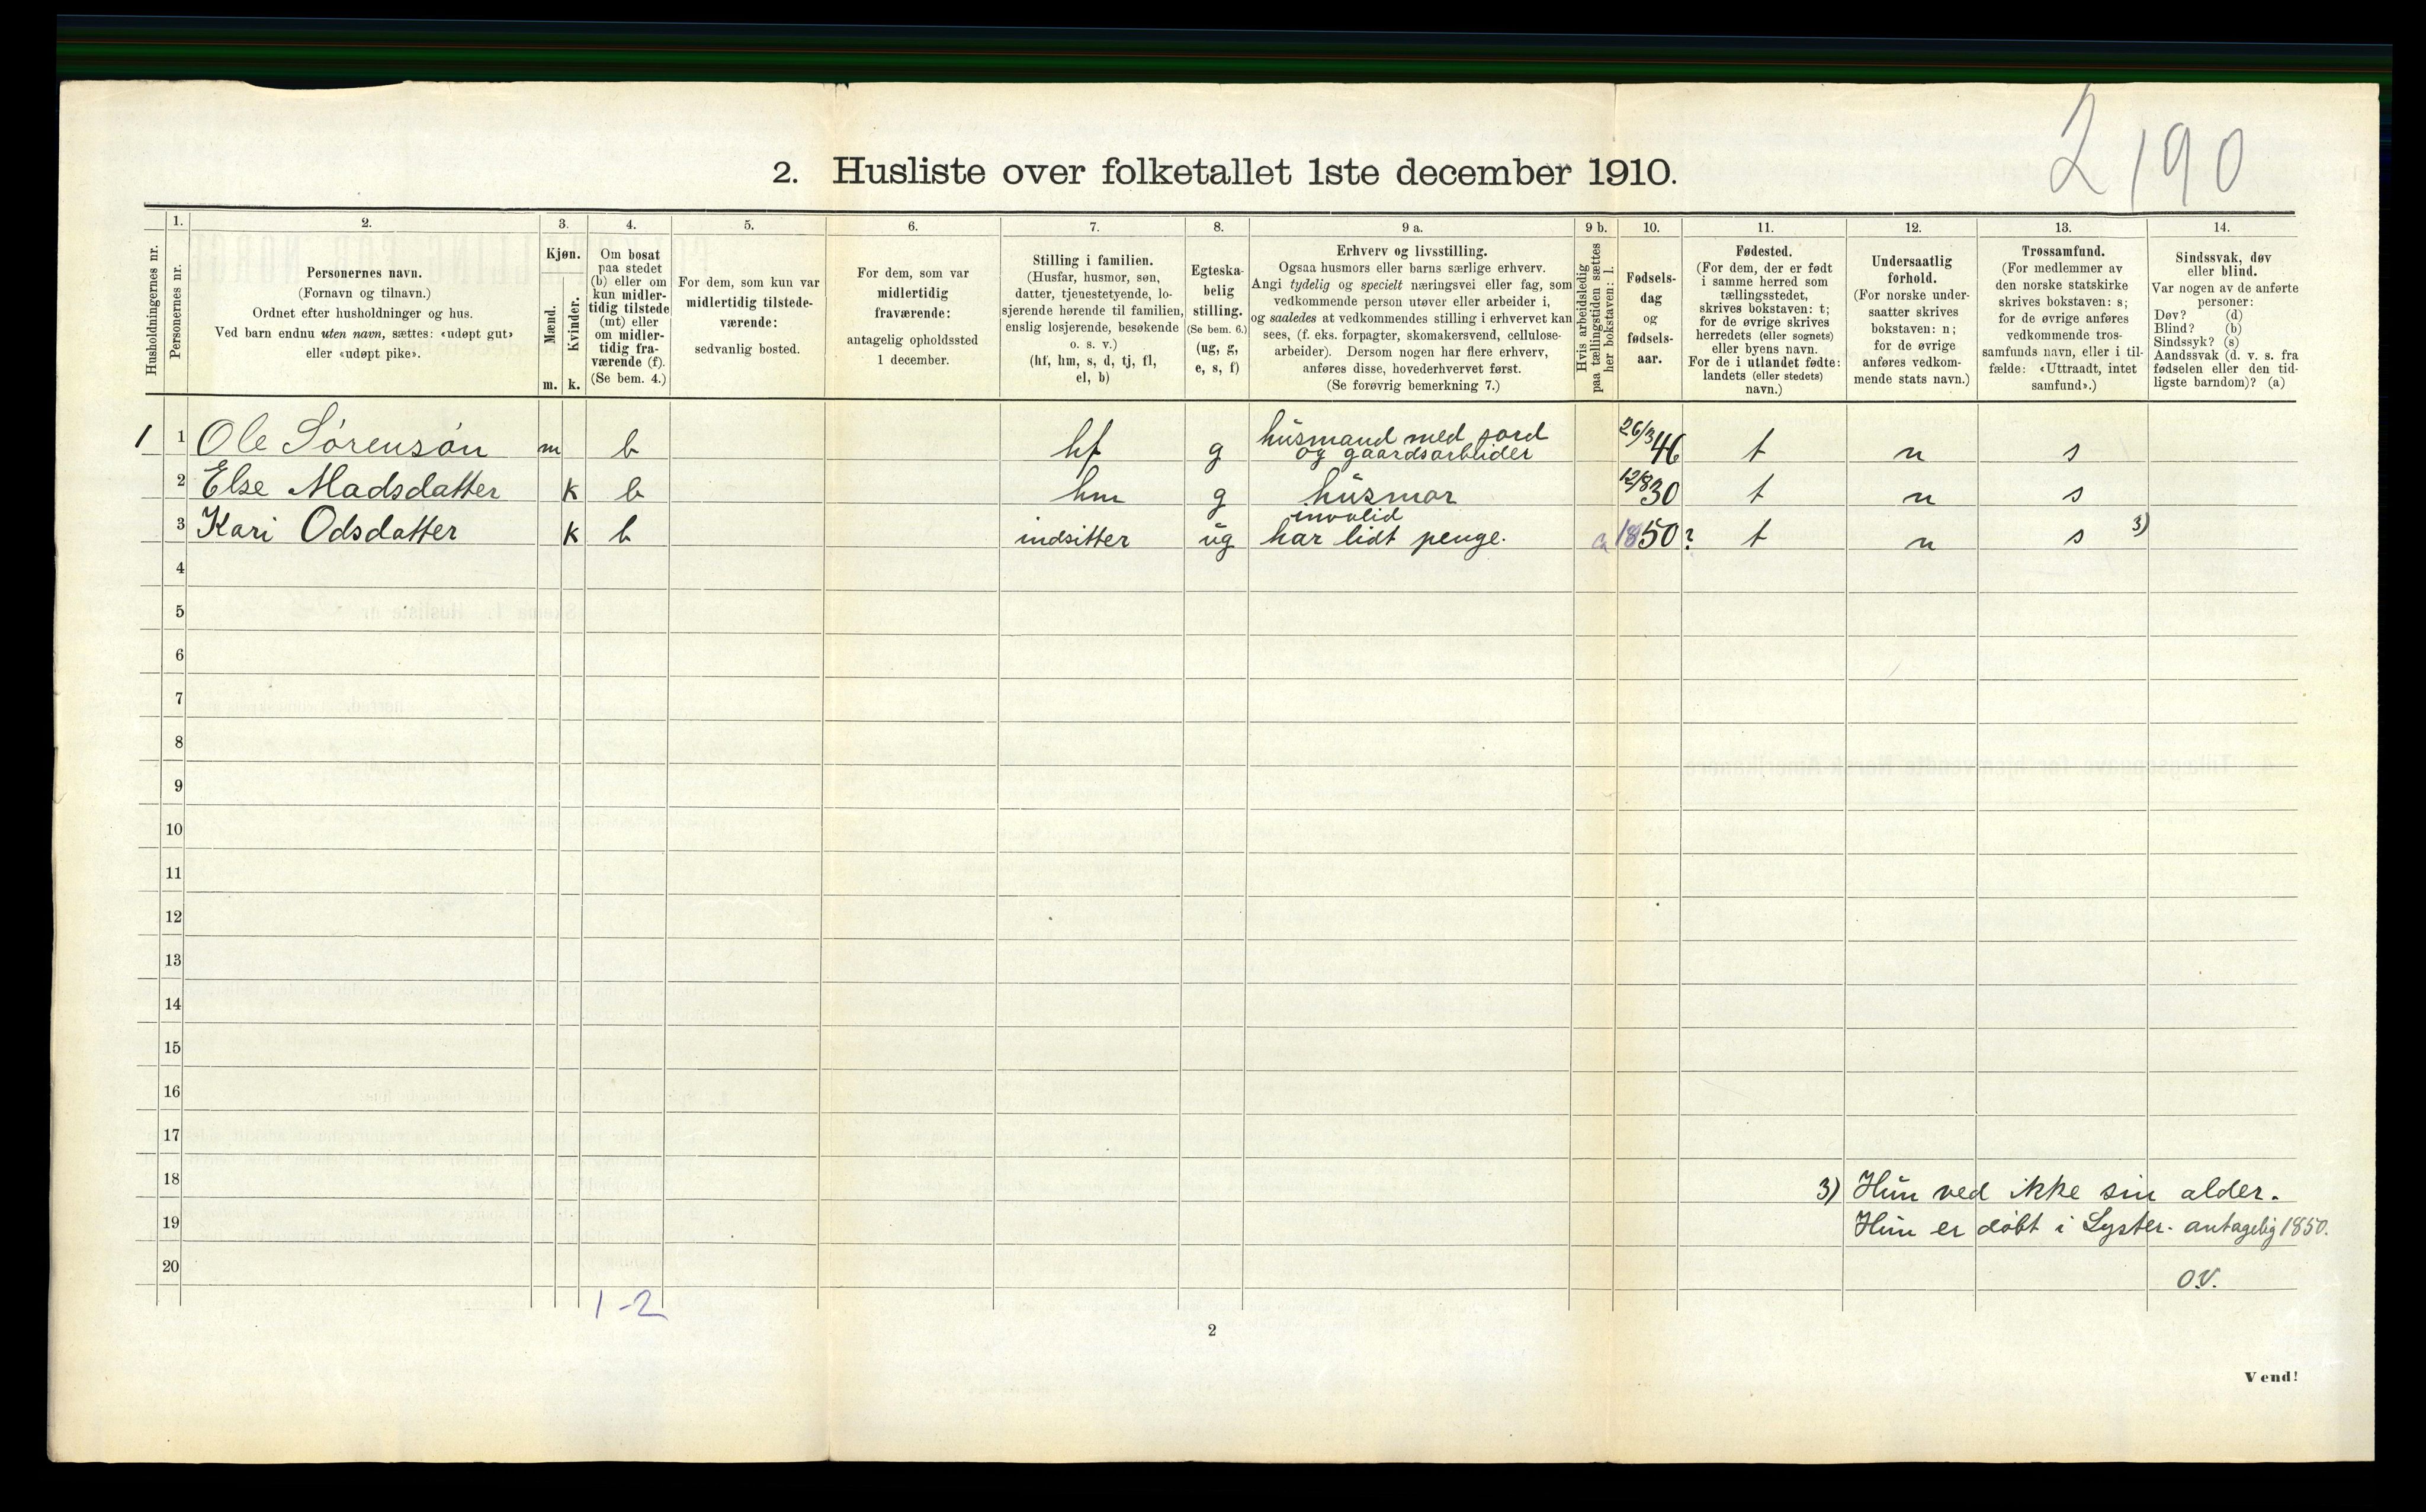 2190
2. Husliste over folketallet 1ste december 1910.
Husholdningernes nr.
1.
Personernes nr.
2.
Personernes navn.
(Fornavn og tilnavn.)
Ordnet efter husholdninger og hus.
Ved barn endnu uten navn, sættes: «udøpt gut»
eller «udøpt pike».
3.
Kjøn.
Mænd.
m.
Kvinder.
k.
4.
Om bosat
paa stedet
(b) eller om
kun midler-
tidig tilstede
(mt) eller
om midler-
tidig fra-
værende (f).
(Se bem. 4.)
5.
For dem, som kun var
midlertidig tilstede-
værende:
sedvanlig bosted.
6.
For dem, som var
midlertidig
fraværende:
antagelig opholdssted
1 december.
7.
Stilling i familien.
(Husfar, husmor, søn,
datter, tjenestetyende, lo-
sjerende hørende til familien,
enslig losjerende, besøkende
o. s. v.)
(hf, hm, s, d, tj, fl,
el, b)
8.
Egteska-
belig
stilling.
(Se bem. 6.)
(ug, g,
e, s, f)
9 a.
Erhverv og livsstilling.
Ogsaa husmors eller barns særlige erhverv.
Angi tydelig og specielt næringsvei eller fag, som
vedkommende person utøver eller arbeider i,
og saaledes at vedkommendes stilling i erhvervet kan
sees, (f. eks. forpagter, skomakersvend, cellulose-
arbeider). Dersom nogen har flere erhverv,
anføres disse, hovederhvervet først.
(Se forøvrig bemerkning 7.)
9 b.
Hvis arbeidsledig
paa tællingstiden sættes
her bokstaven: l.
10.
Fødsels-
dag
og
fødsels-
aar.
11.
Fødested.
(For dem, der er født
i samme herred som
tællingsstedet,
skrives bokstaven: t;
for de øvrige skrives
herredets (eller sognets)
eller byens navn.
For de i utlandet fødte:
landets (eller stedets)
navn.)
12.
Undersaatlig
forhold.
(For norske under-
saatter skrives
bokstaven: n;
for de øvrige
anføres vedkom-
mende stats navn.)
13.
Trossamfund.
(For medlemmer av
den norske statskirke
skrives bokstaven: s;
for de øvrige anføres
vedkommende tros-
samfunds navn, eller i til-
fælde: «Uttraadt, intet
samfund».)
14.
Sindssvak, døv
eller blind.
Var nogen av de anførte
personer:
Døv? (d)
Blind? (b)
Sindssyk? (s)
Aandssvak (d. v. s. fra
fødselen eller den tid-
ligste barndom)? (a)
1 1 Ole Sørensøn m b hf g husmand med jord og gaardsarbeider 26/3 46 t n s
2 Else Madsdatter k b hm g husmor 12/8 30 t n s
3 Kari Odsdatter k b indsitter ug invalid har lidt penge. ca 1850? t n s 3)
4
5
6
7
8
9
10
11
12
13
14
15
16
17
18
19
20
3) Hun ved ikke sin alder.
Hun er døbt i Lyster. antagelig 1850.
O.V.
1-2
2
Vend!